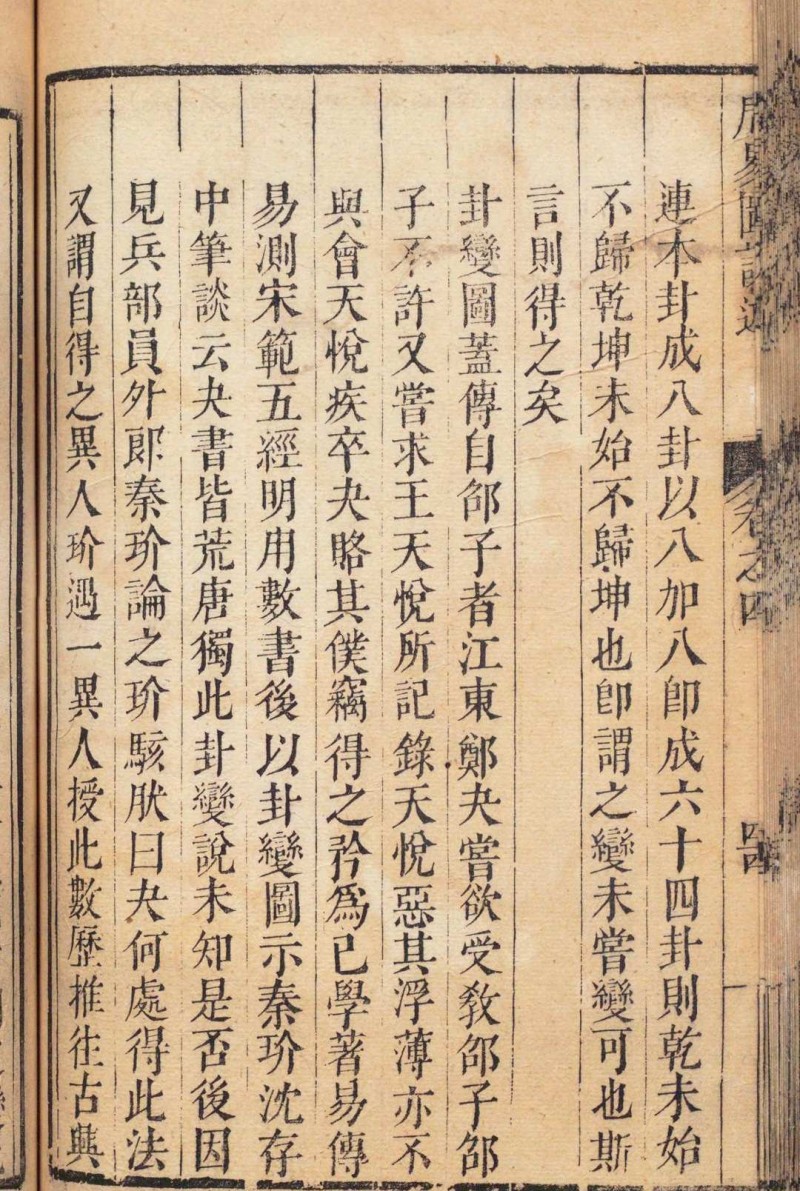 周易圖說述
卷之四
連本卦成八卦以八加八卽成六十四卦則乾未始
不歸乾坤未始不歸坤也卽謂之變未嘗變可也斯
言則得之矣
卦變圖蓋傳自邵子者江東鄭夬嘗欲受教邵子邵
子不許又嘗求王天悅所記錄天悅惡其浮薄亦不
與會天悅疾卒夬賂其僕竊得之矜爲己學著易傳
易測宋範五經明用數書後以卦變圖示秦玠沈存
中筆談云夬書皆荒唐獨此卦變說未知是否後因
見兵部員外郎秦玠論之玠駭肰曰夬何處得此法
又謂自得之異人玠遇一異人授此數歷推往古興